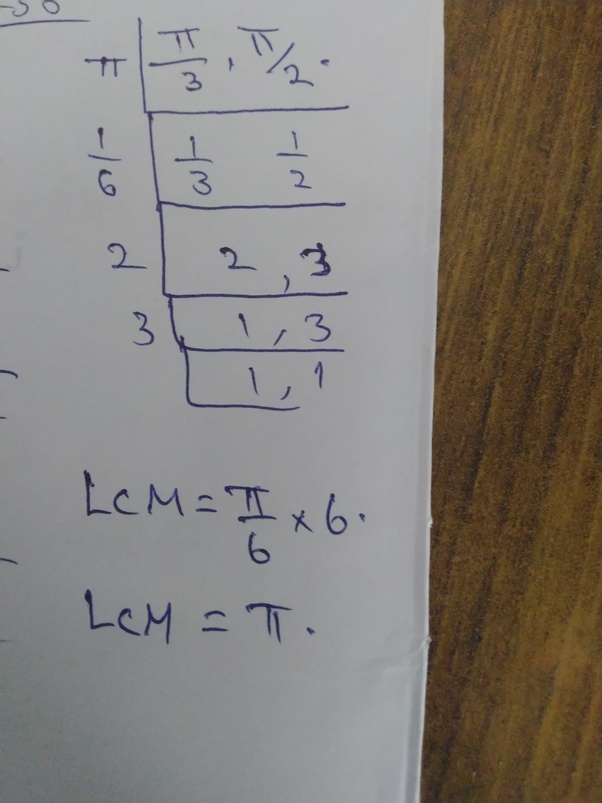 π π/3, π/2.
1/6 1/3 1/2
2 2, 3
3 1, 3
1, 1
LCM = π/6 × 6.
LCM = π.